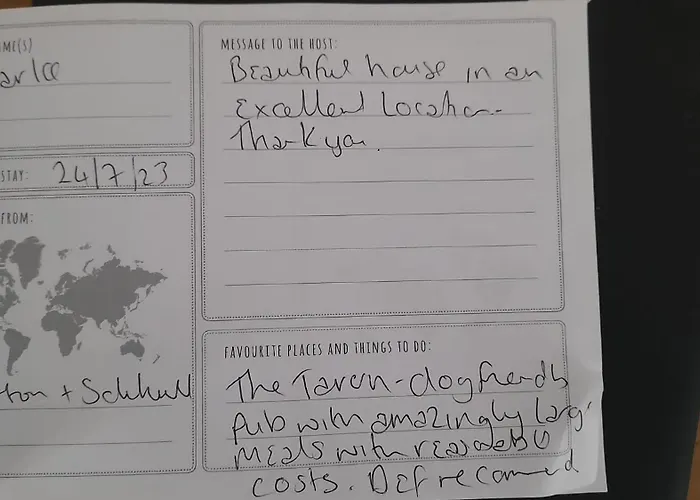 ME(S)
STAY: 24/7/23
FROM:
MESSAGE TO THE HOST:
Beautiful house in an
Excellent Location.
Thank you.
FAVOURITE PLACES AND THINGS TO DO:
The Tavern - dog friendly
pub with amazingly large
meals with reasonable
costs. Def recommend